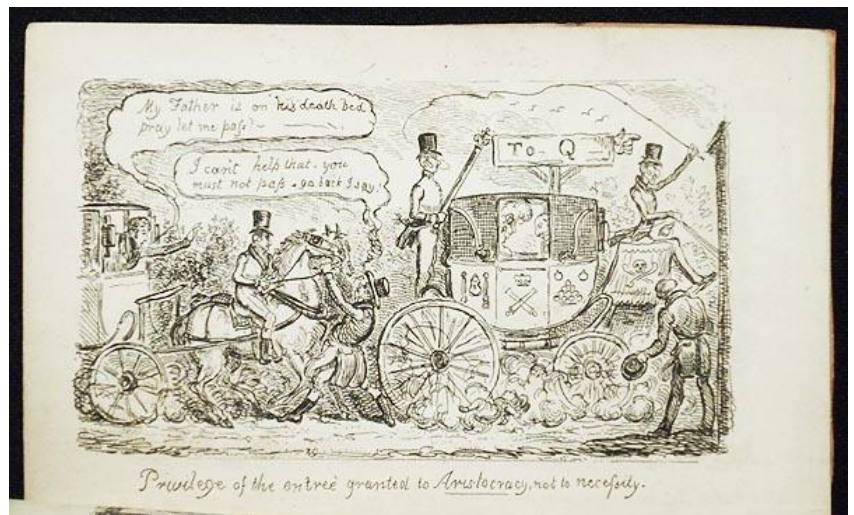 My Father is on his death bed
pray let me paſs?
I can't help that. you
must not paſs. go back I say!
To Q
Privilege of the entreé granted to Aristocracy, not to neceſsity.